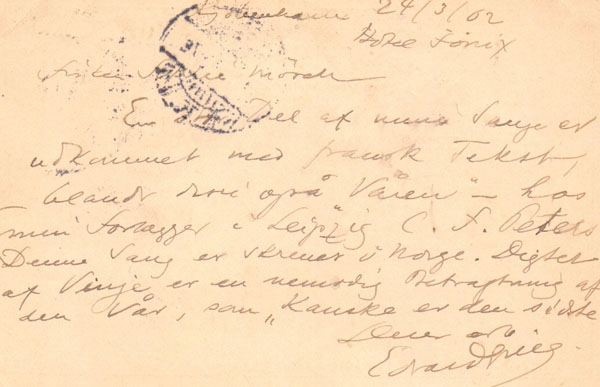 Kjøbenhavn 24/3/02
Hotel Fönix
Frøken Mörch
En stor Del af mine Sange er
udkommet med fransk Tekst,
blandt dem også "Våren" – hos
min Forlægger i Leipzig C. F. Peters
Denne Sang er skrevet i Norge. Digtet
af Vinje er en vemodig Betragtning af
den Vår, som "Kanske er den sidste
Deres erb.
Edvard Grieg.